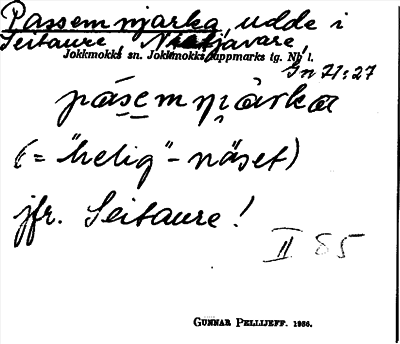 Passemnjarka, udde i
Seitaure, Njavare,
Jokkmokks sn. Jokkmokks lappmarks tg. Nb. l.
Gn 21:27
pásemnjàrkα
(= "helig"-näset)
jfr. Seitaure!
II 85
GUNNAR PELLIJEFF. 1956.